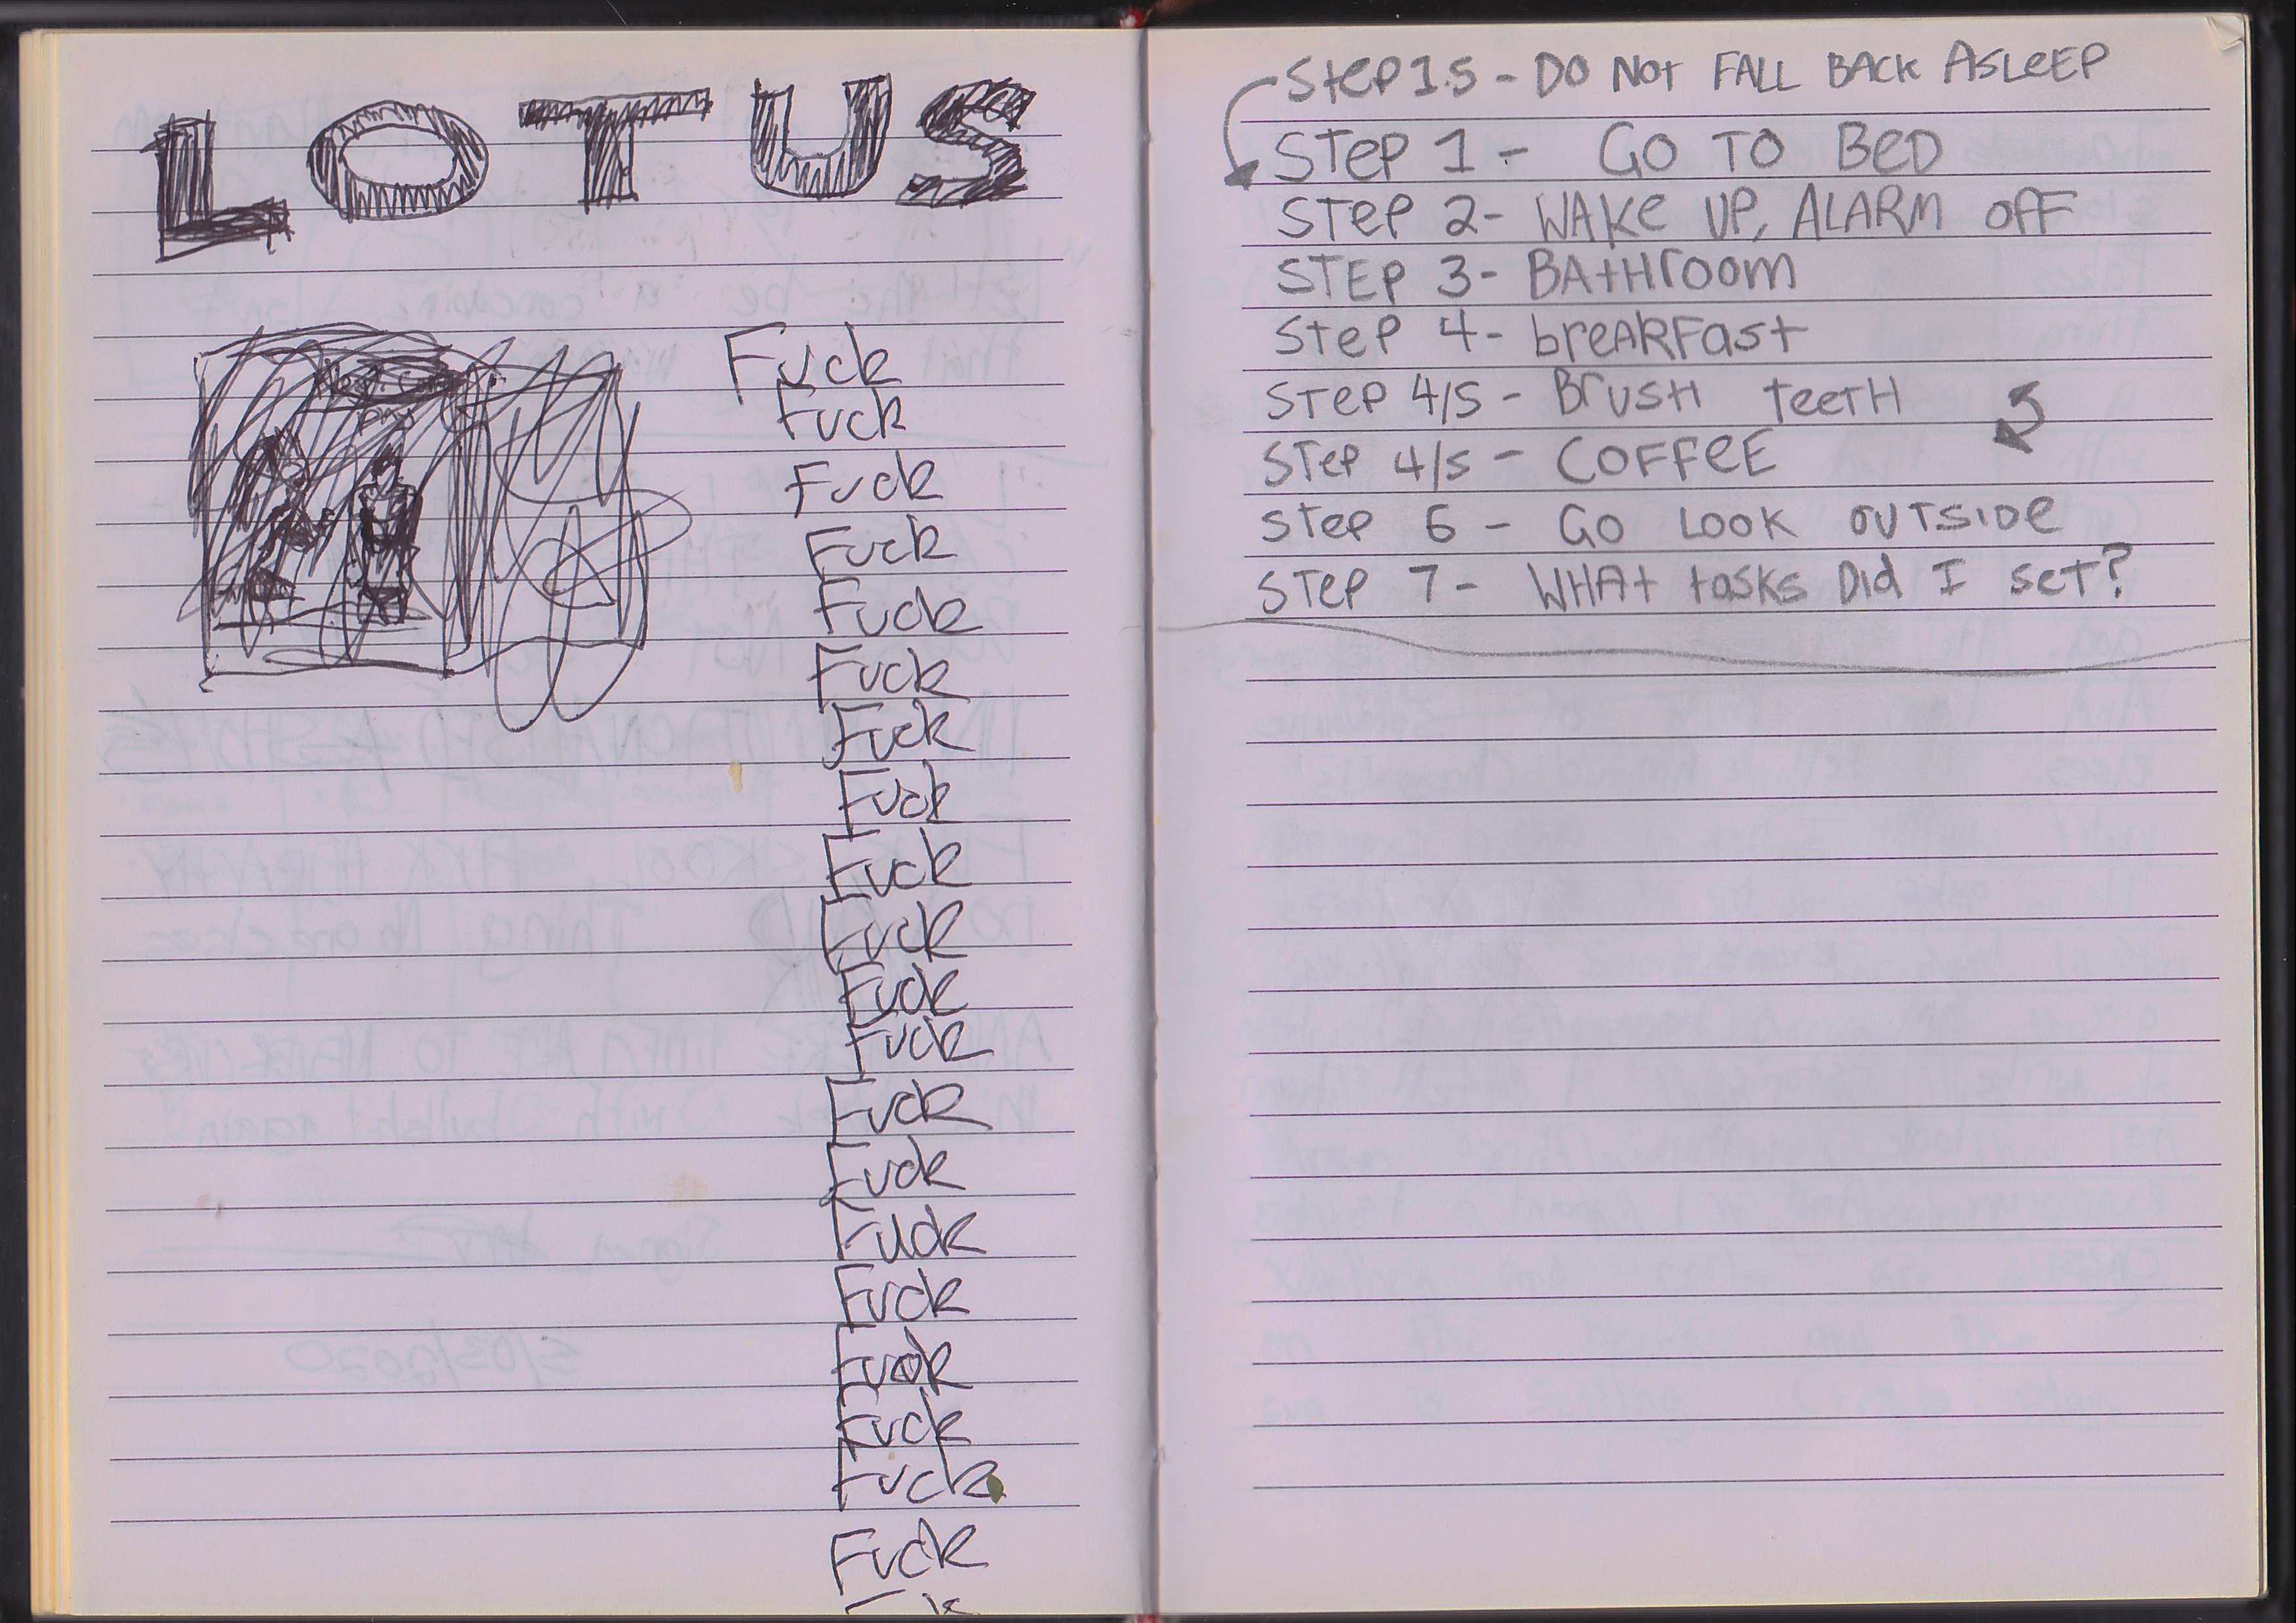 LOTUS
Fuck
Fuck
Fuck
Fuck
Fuck
Fuck
Fuck
Fuck
Fuck
Fuck
Fuck
Fuck
Fuck
Fuck
Fuck
Fuck
Fuck
Fuck
Fuck
Fuck
Step 1.5 - DO NOt FALL BACK ASLeEP
STeP 1 - GO TO BeD
STeP 2 - WAKe UP, ALARM OFF
STEP 3 - BAtHrooM
SteP 4 - breAKFast
STeP 4/5 - BrUSH TeeTH
STeP 4/5 - COFFeE
STep 6 - GO LOOK OUTSIDe
STeP 7 - WHAt tasks Did I SeT?